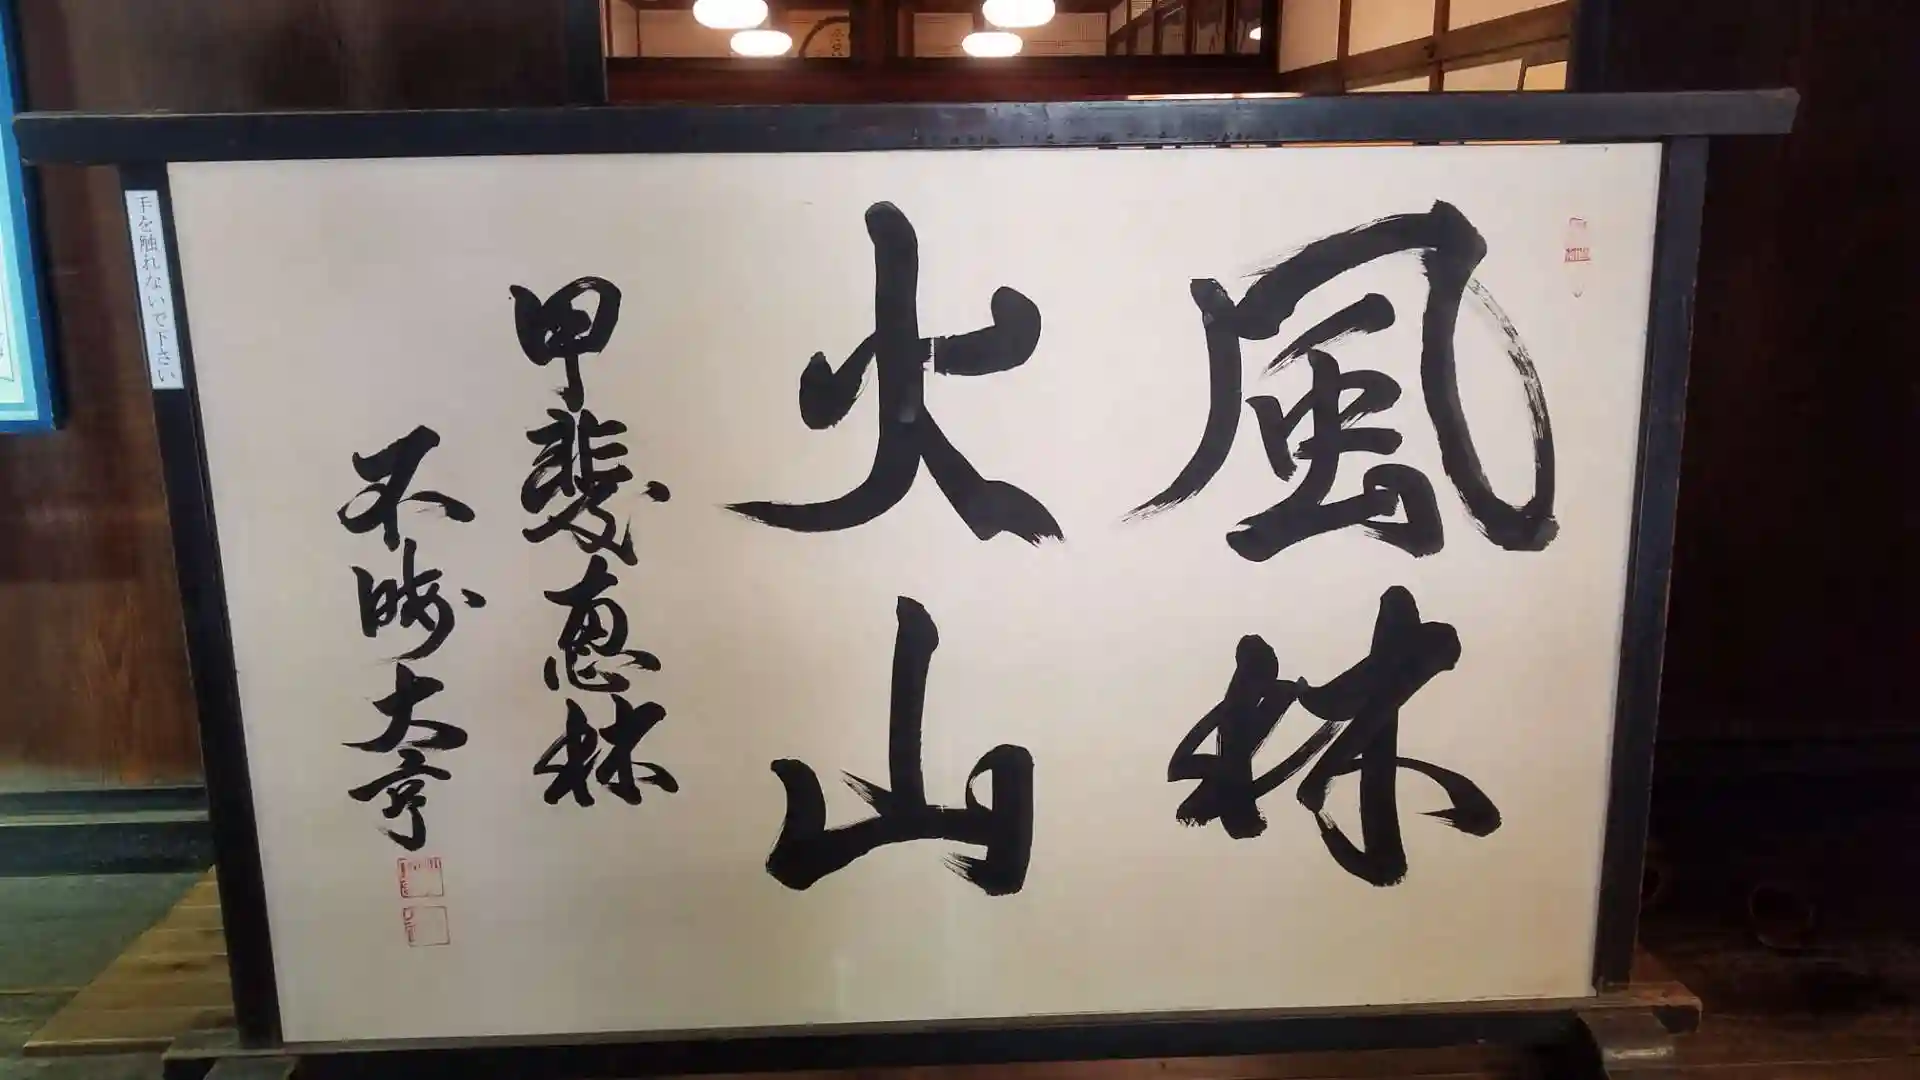 風林
火山
甲斐恵林
不晦大亨
手を触れないで下さい